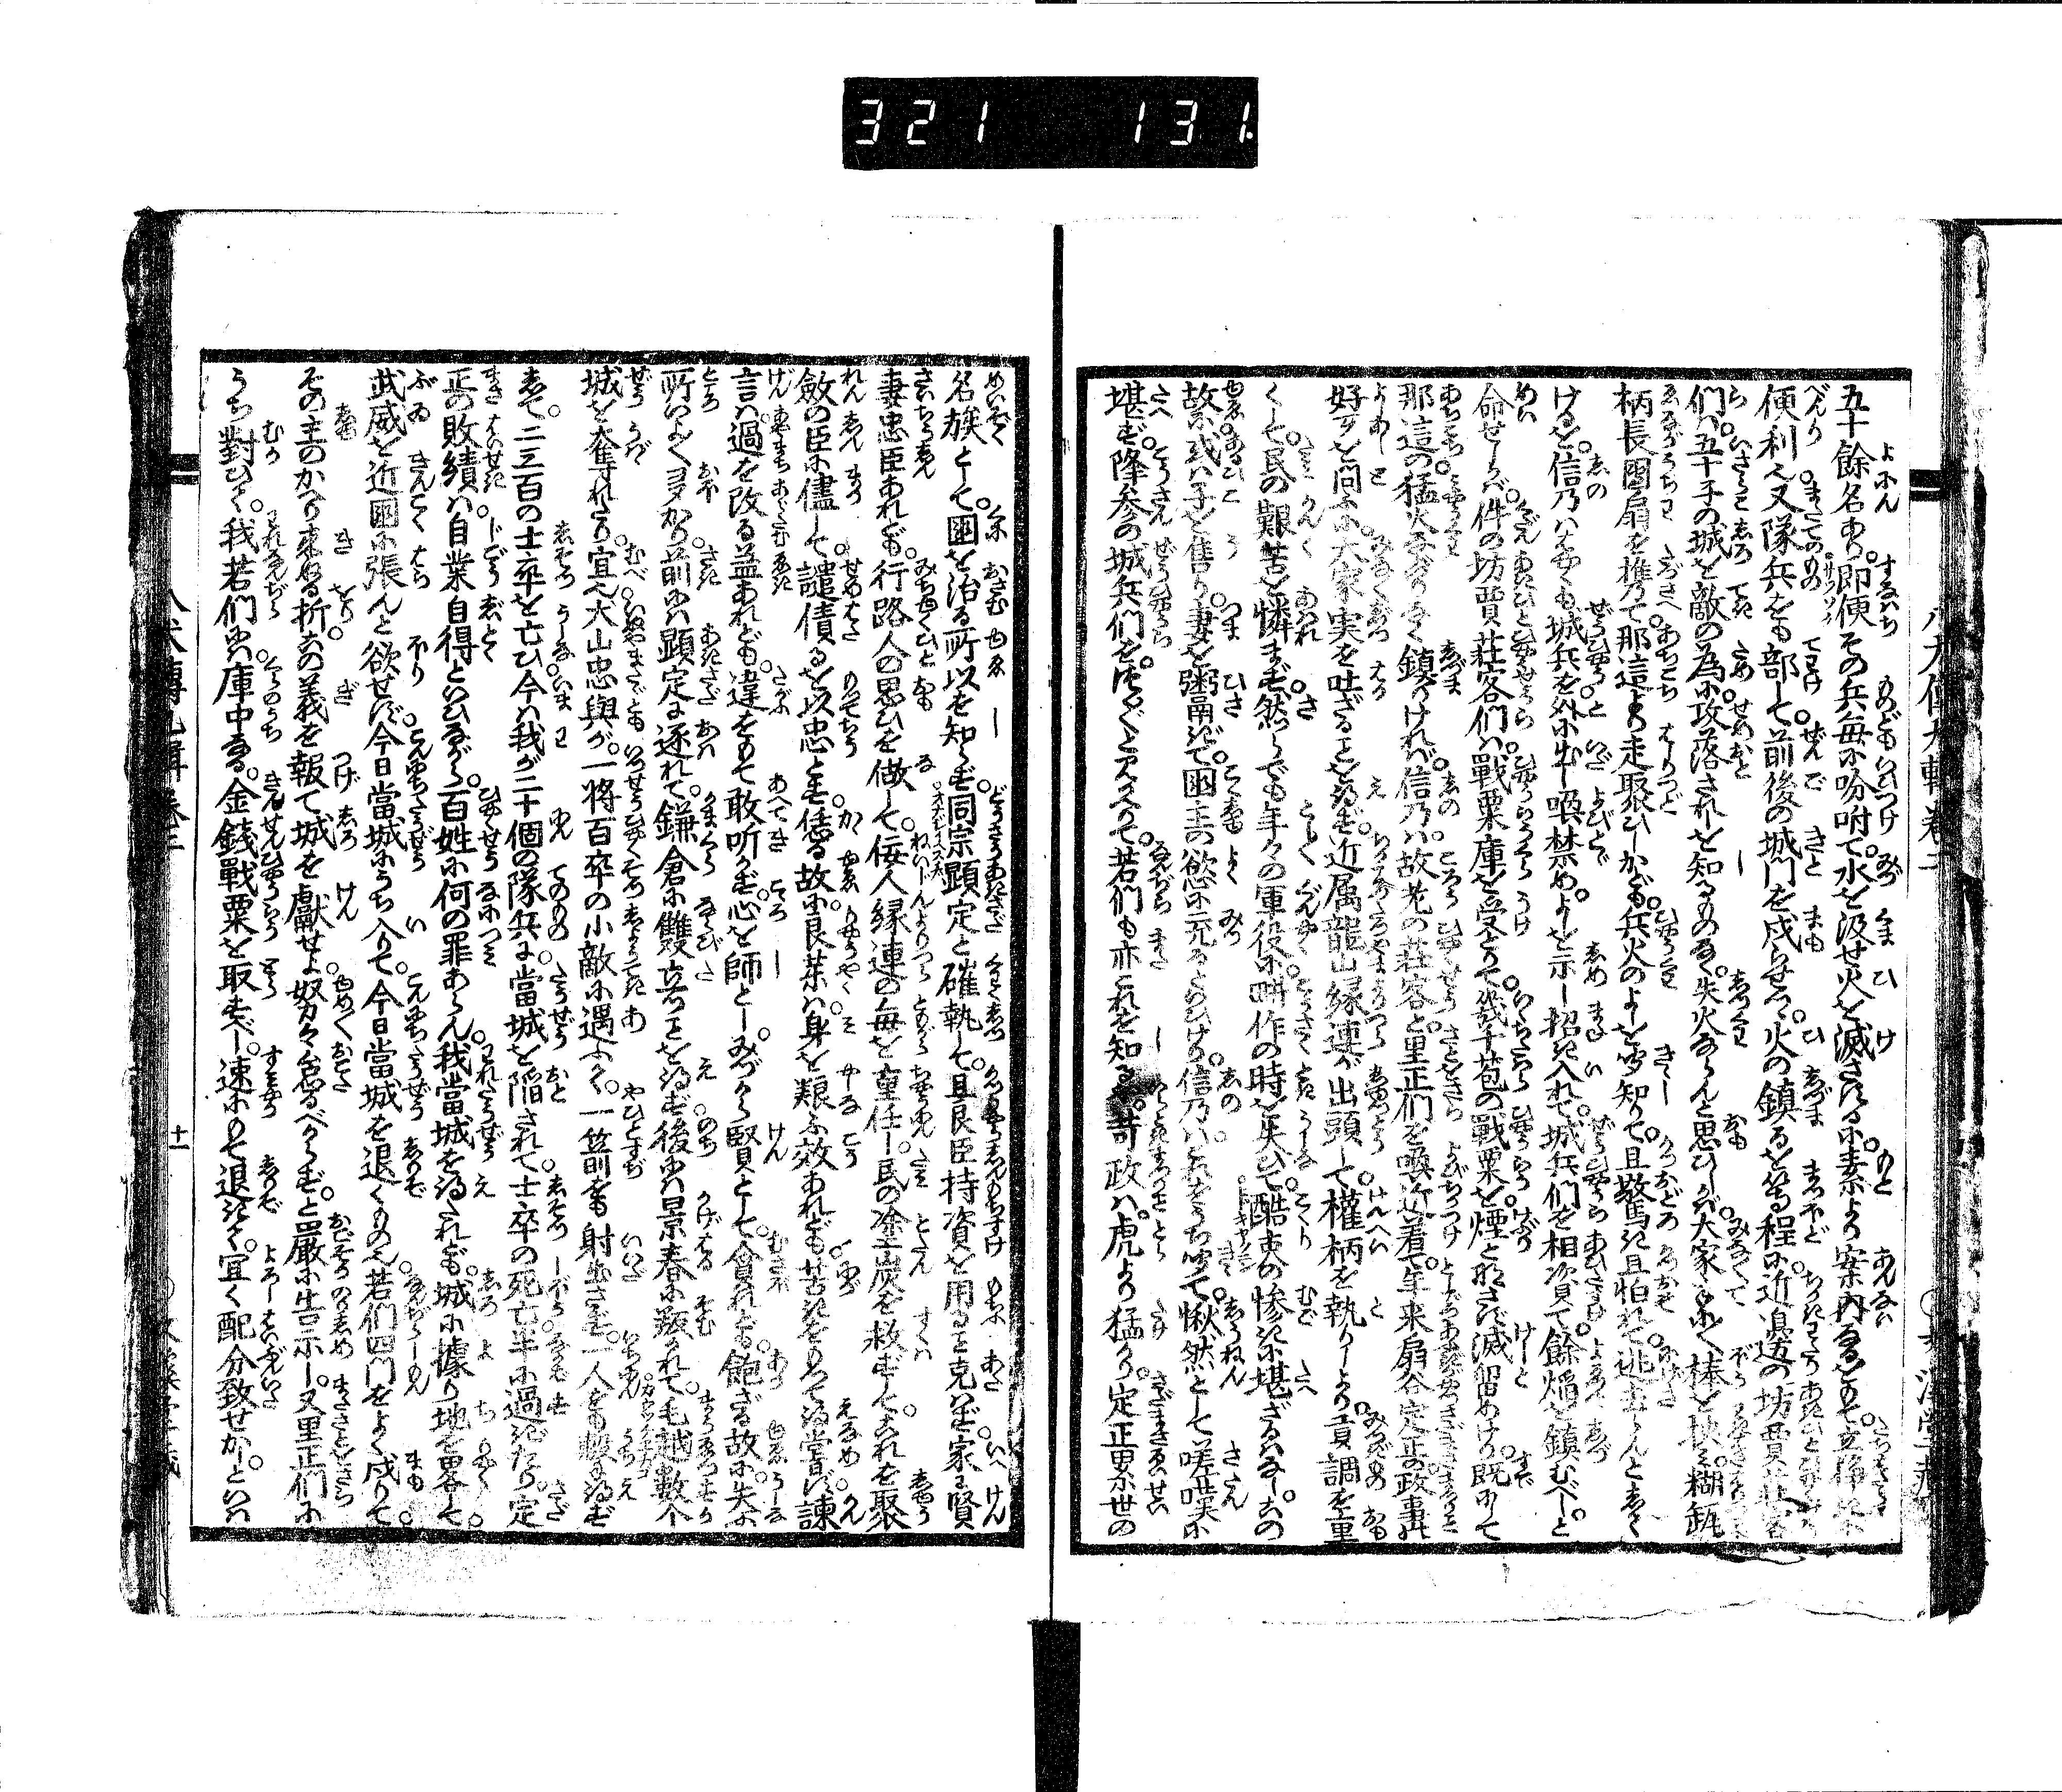 321 131.
五十餘名あり。即便その兵毎に吩咐て。水を汲せ火を滅さするに。素より案内なるをもて。
便利へ又隊兵をも部して前後の城門を戍らせつゝ。火の鎮るを等る程に。近邊の坊賈莊客
們ハ五十子の城を敵の為に攻落されしを知るものなく。失火ならんと思ひしかバ。大家
柄長團扇を携て。那這より走聚ひしかども。兵火のよしを聞知りて。且驚き且怕れて。逃去らんとしてけ
るを。信乃ハはやくも城兵を外に出し喚禁め。よしを示し招き入れて。城兵們を相資て。餘焔を鎮むべしと
命せしかバ。件の坊賈莊客們ハ。戰粟庫を受とりて。幾千苞の戰粟を。煙と做さず滅留めけり。既にして
那這の猛火。鎮りけれバ。信乃ハ故老の莊客と。里正們を喚近着て。年来扇谷定正の政事の
好歹を問ふに。大家実を吐ざることを得ず。近属龍山縁連が出頭して。權柄を執りしより。貢調を重
くして。民の艱苦を憐まず。然らでも年々の軍役に。畊作の時を失ひて。酷吏の惨きに堪ざるハなし。その
故に或ハ子を售り。妻を粥ぎて。國主の慾に充るといひけり。信乃ハこれをうち聞て。愀然として嗟嘆に
堪ず。降参の城兵們を。つら〳〵と見かへりて。若們も亦これを知るや。苛政ハ。虎より猛かり。定正累世の
名族として。國を治る所以を知らず。同宗顕定と確執して。且良臣持資を用ることを克はず。家に賢
妻忠臣あれども。行路人の思ひを做して。佞人縁連の毎を重任し。民の塗炭を救ずして。これを聚
斂の臣に儘して。譴債るを以忠とす。恁る故に。良薬ハ身を艱ふ效あれども。苦きをもて得嘗ず。諫
言ハ過を改る益あれども。違をもて敢听かず。心を師とし。みづから賢として。貪れども。飽ざる故に。失ふ
所いよ〳〵多かり。前にハ顕定に逐れて。鎌倉に雙立ことを得ず。後にハ景春に叛かれて。毛越數个
城を奪れたり。宜へ犬山忠與が。一将百卒の小敵に遇ふて。一箭をも射出さず。一人をも殺し得ず
して。二三百の士卒を亡ひ。今ハ我が二十個の隊兵に。當城を陥されて。士卒の死亡半に過たり。定
正の敗績ハ。自業自得といひながら。百姓に何の罪あらん。我當城を得たれども。城に據り地を畧して
武威を近國に張んと欲せず。今日當城にうち入りて。今日當城を退くものへ。若們四門をよく戍りて
その主のかへり来ぬる折。この義を報て城を獻せよ。努々怠るべからず。と最厳に告示し。又里正們に
うち對ひて。我若們にハ。庫中なる。金錢戰粟を取すべし。速にもて退きて。宜く配分致せかし。といハ